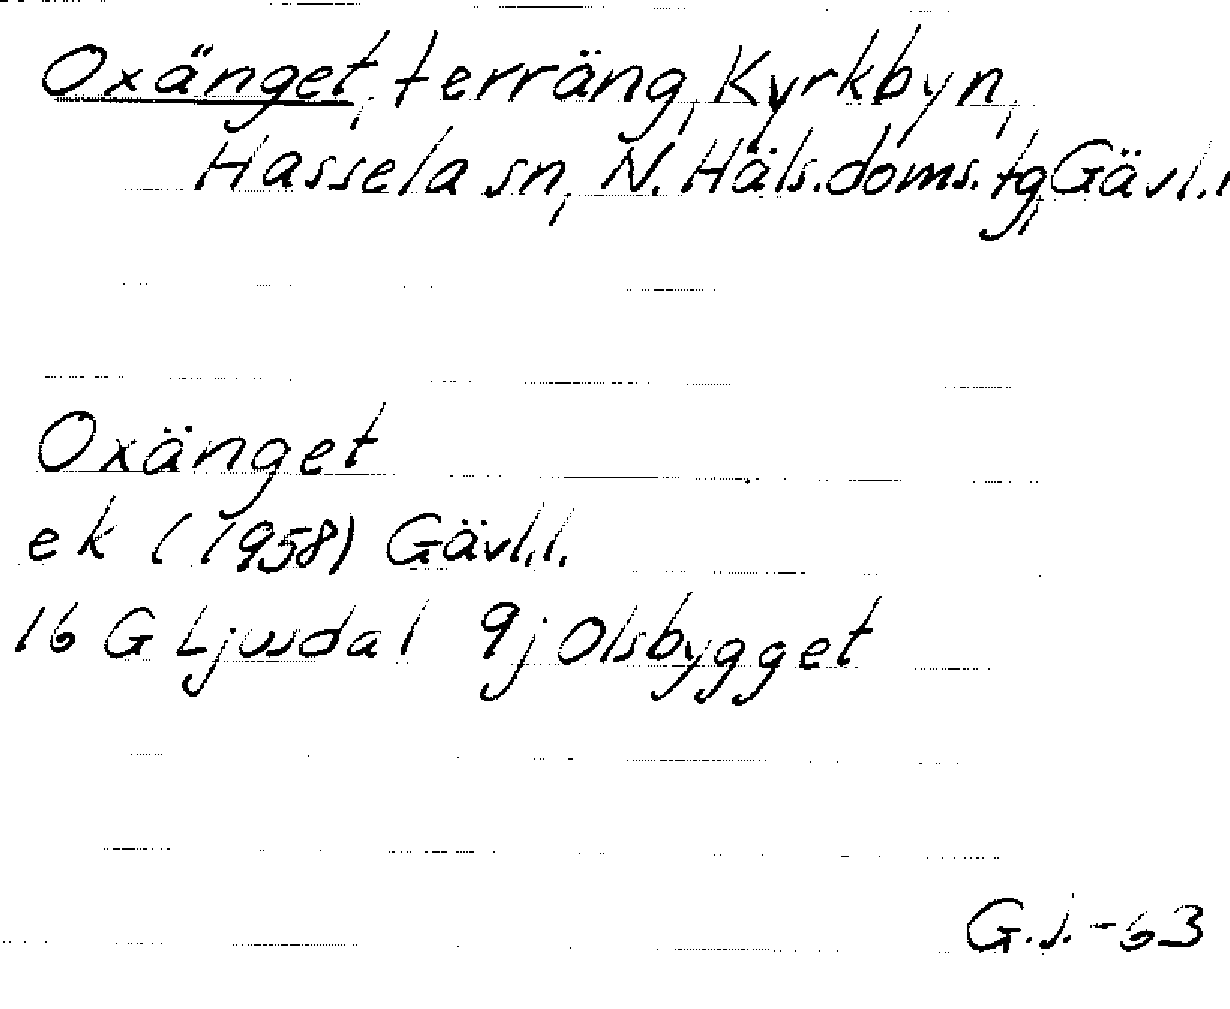 Oxänget, terräng, Kyrkbyn,
Hassela sn, N. Häls.doms.tg, Gävl.l
Oxänget
ek (1958) Gävl.l.
16 G Ljusdal 9j Olsbygget
G.j.-63